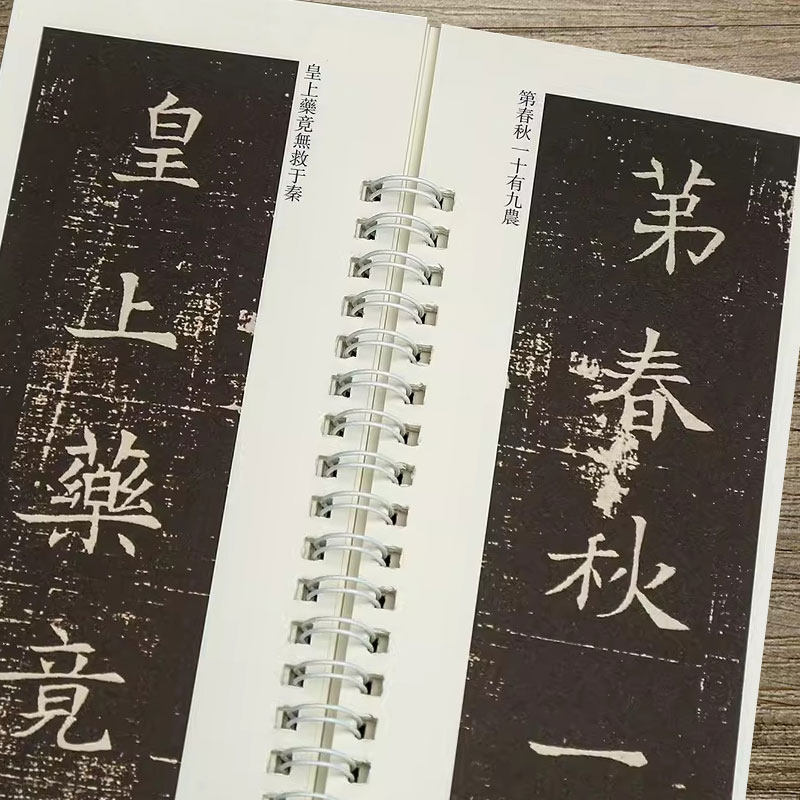 苐春秋一
第春秋一十有九農
皇上藥竟無救于秦
皇上藥竟